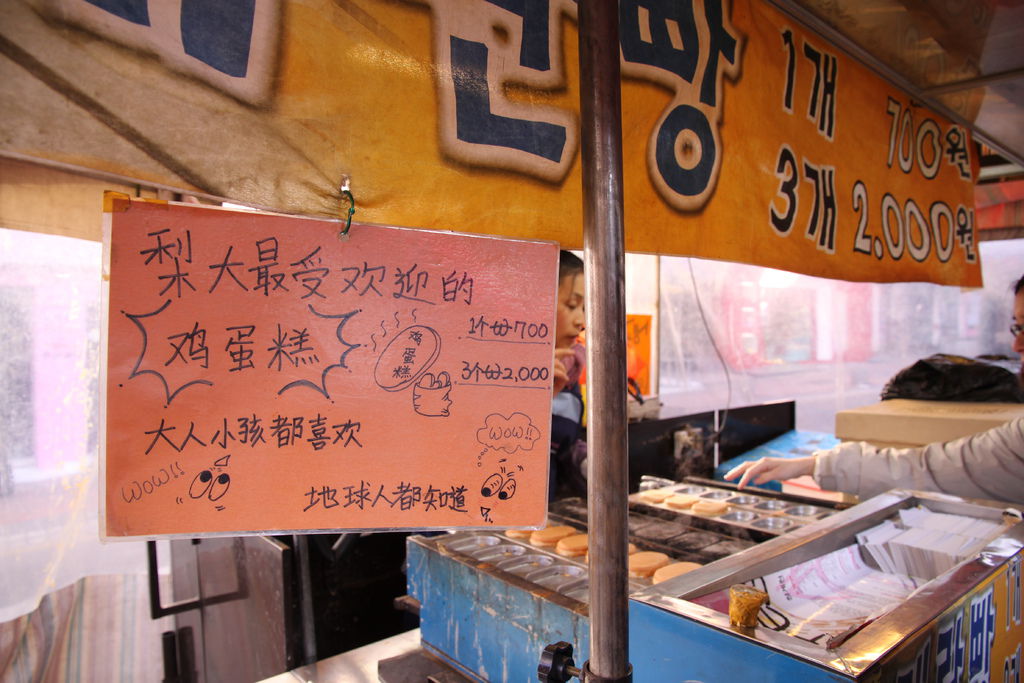 란빵
1개 700원
3개 2.000원
梨大最受欢迎的
鸡蛋糕
鸡蛋糕
1个₩700
3个₩2,000
大人小孩都喜欢
WOW!!
WOW!!
地球人都知道
란빵
1개